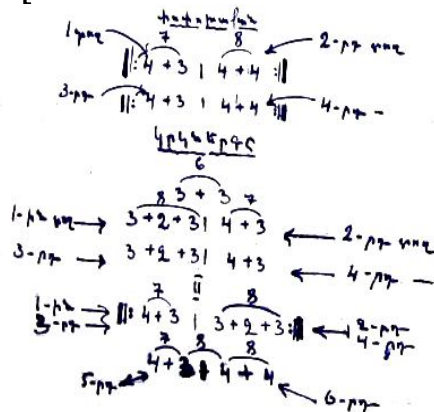 7 8
1 տող ‖: 4 + 3 | 4 + 4 :‖ 2-րդ տող
3-րդ ‖: 4 + 3 | 4 + 4 :‖ 4-րդ -
Կրկներգ
6
3 + 3
8 7
1-ին տող 3 + 2 + 3 | 4 + 3 2-րդ տող
3-րդ 3 + 2 + 3 | 4 + 3 4-րդ -
II
7 8
1-ին ‖: 4 + 3 | 3 + 2 + 3 :‖ 2-րդ
3-րդ 4-րդ
7 8 8
5-րդ 4 + 3 4 + 4 6-րդ